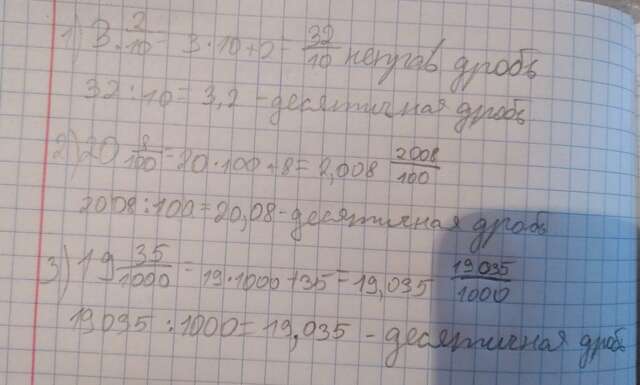 1) 3 2/10 = 3·10+2 = 32/10 неправ дробь
32 : 10 = 3,2 - десятичная дробь
2) 20 8/100 = 20·100+8 = 2,008 2008/100
2008 : 100 = 20,08 - десятичная дробь
3) 19 35/1000 = 19·1000+35 = 19,035 19035/1000
19035 : 1000 = 19,035 - десятичная дробь